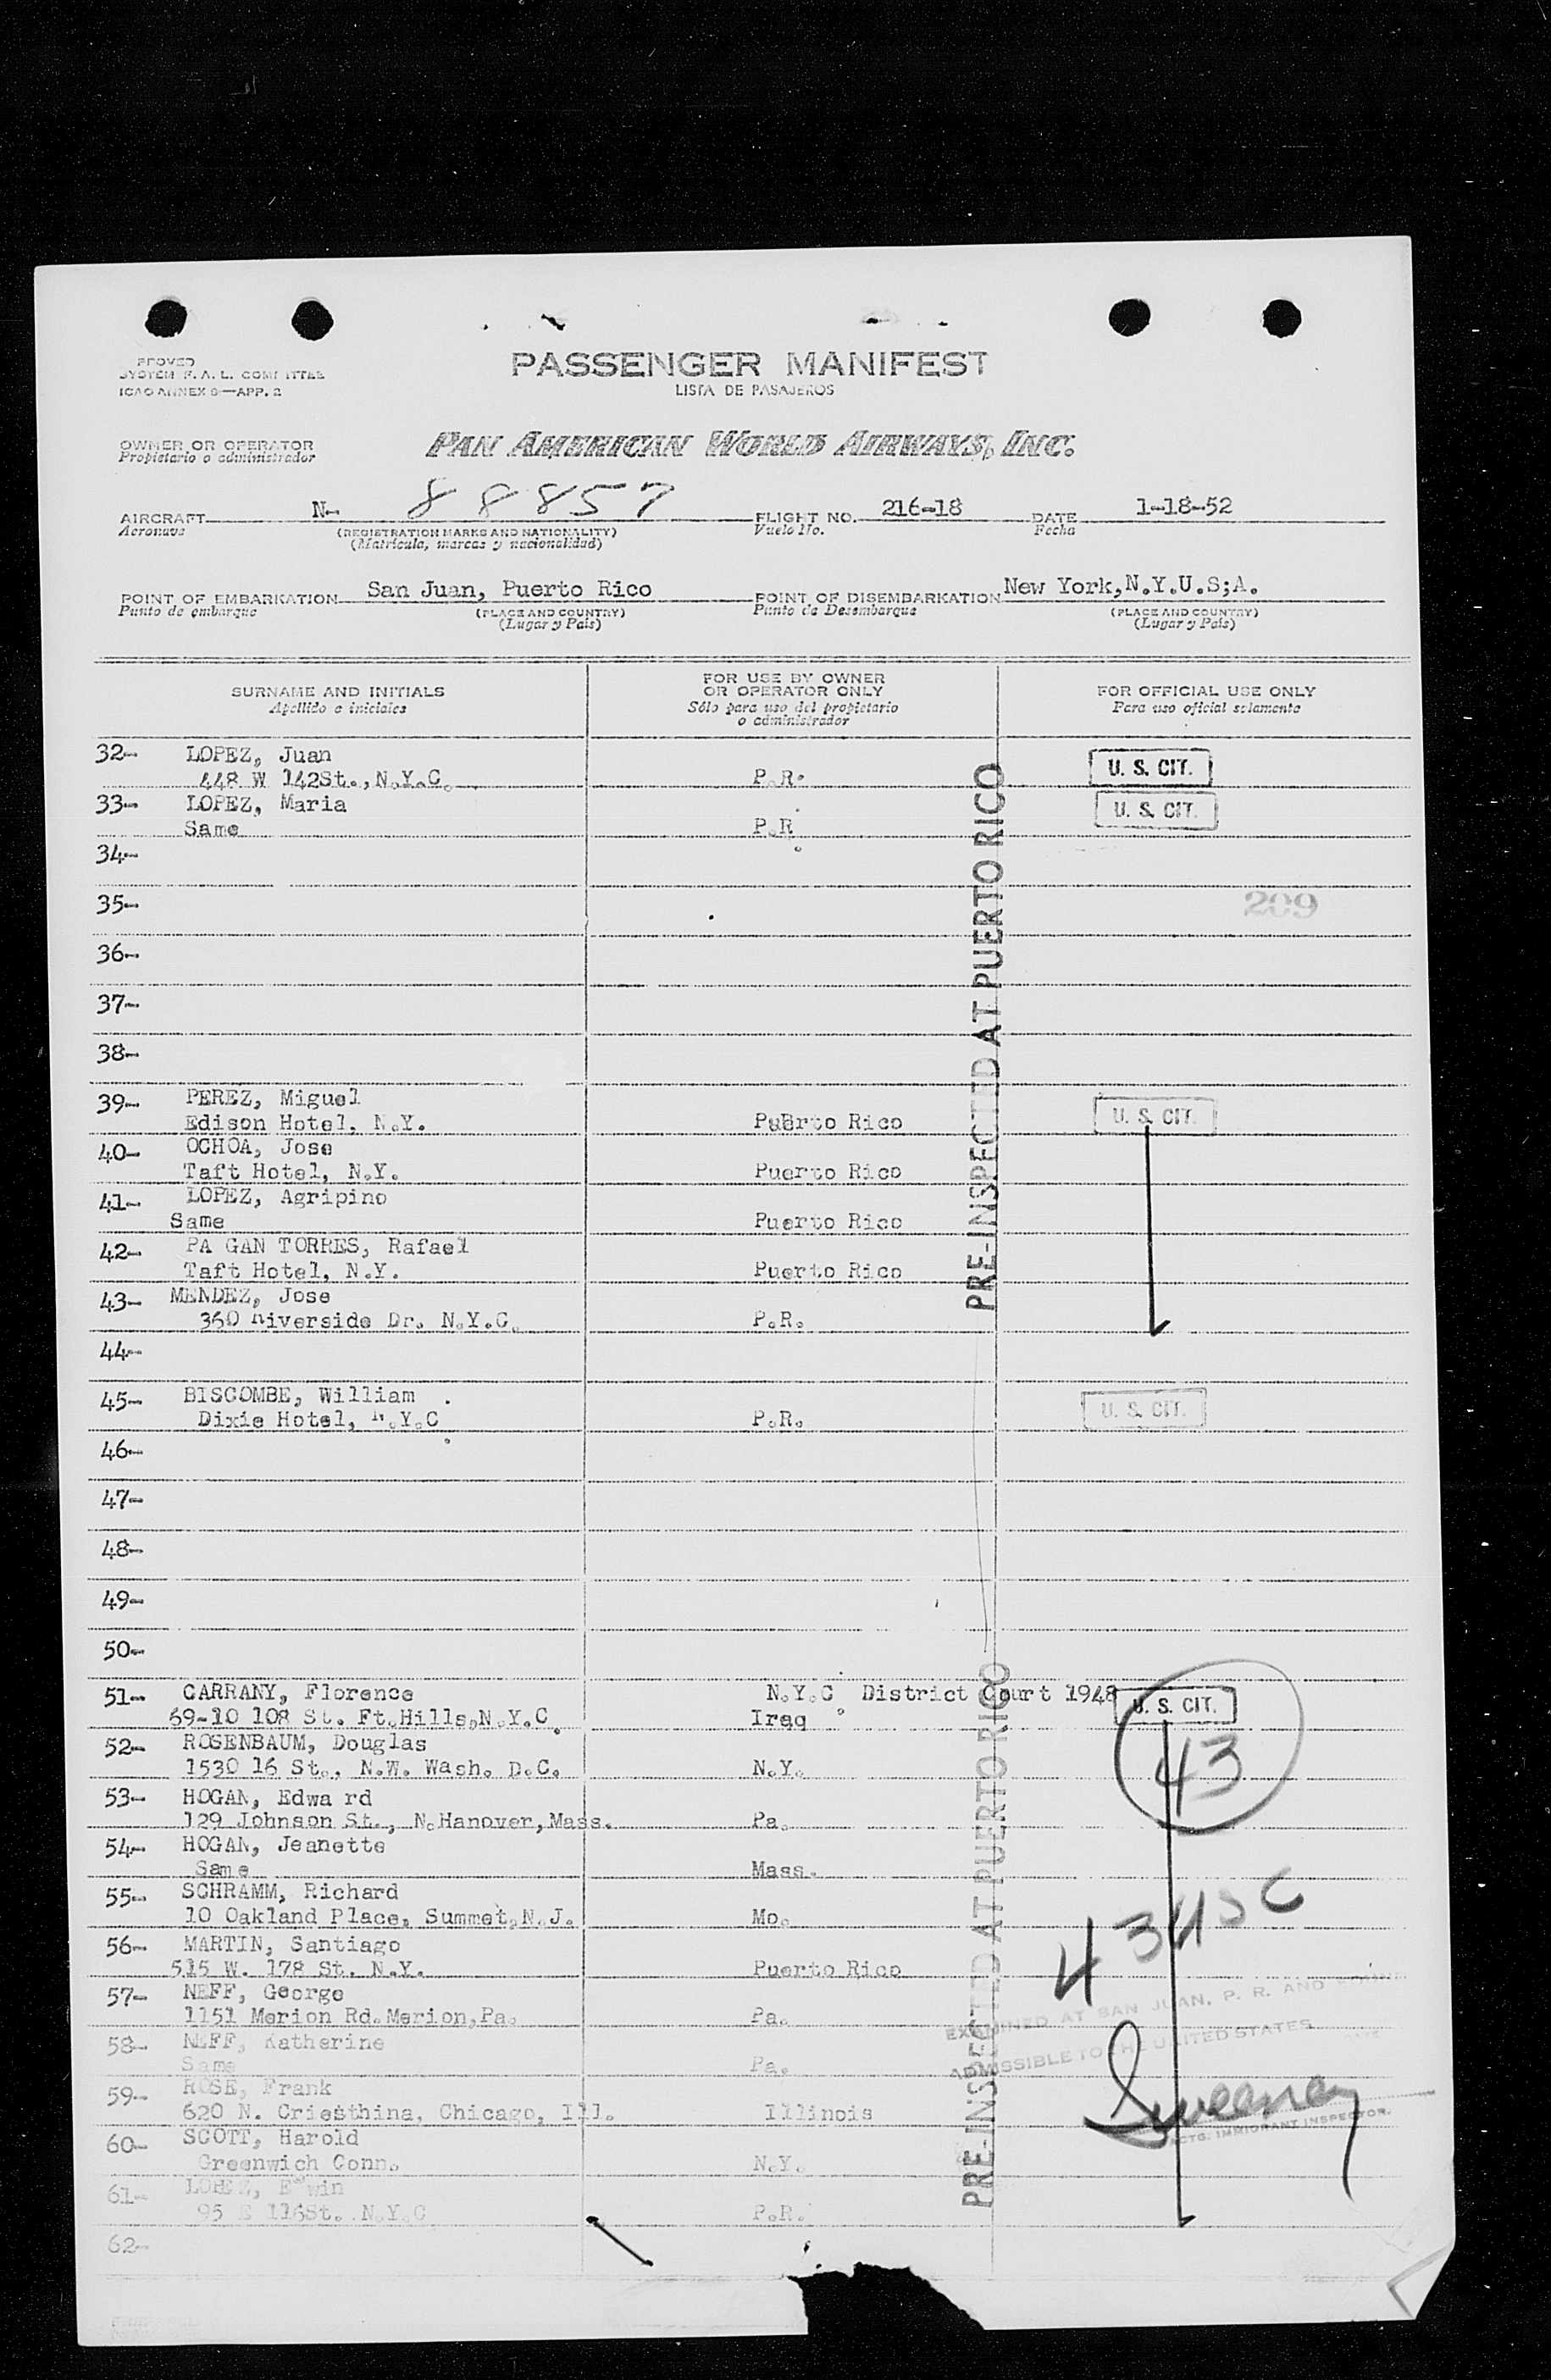 PROVED
SYSTEM F. A. L. COMMITTEE
ICAO ANNEX 9—APP. 2
PASSENGER MANIFEST
LISTA DE PASAJEROS
OWNER OR OPERATOR
Propietario o administrador
PAN AMERICAN WORLD AIRWAYS, INC.
AIRCRAFT N- 88857 FLIGHT NO. 216-18 DATE 1-18-52
Aeronave (REGISTRATION MARKS AND NATIONALITY) Vuelo No. Fecha
(Matricula, marcas y nacionalidad)
POINT OF EMBARKATION San Juan, Puerto Rico POINT OF DISEMBARKATION New York,N.Y.U.S;A.
Punto de embarque (PLACE AND COUNTRY) Punto de Desembarque (PLACE AND COUNTRY)
(Lugar y Pais) (Lugar y Pais)
SURNAME AND INITIALS FOR USE BY OWNER OR OPERATOR ONLY FOR OFFICIAL USE ONLY
Apellido e iniciales Sólo para uso del propietario o administrador Para uso oficial solamente
32- LOPEZ, Juan U. S. CIT.
448 W 142St.,N.Y.C. P.R.
33- LOPEZ, Maria U. S. CIT.
Same P.R.
34-
35- 209
36-
37-
38-
39- PEREZ, Miguel U. S. CIT.
Edison Hotel, N.Y. Puerto Rico
40- OCHOA, Jose
Taft Hotel, N.Y. Puerto Rico
41- LOPEZ, Agripino
Same Puerto Rico
42- PA GAN TORRES, Rafael
Taft Hotel, N.Y. Puerto Rico
43- MENDEZ, Jose
360 Riverside Dr. N.Y.C. P.R.
PRE-INSPECTED AT PUERTO RICO
44-
45- BISCOMBE, William U. S. CIT.
Dixie Hotel, N.Y.C. P.R.
46-
47-
48-
49-
50-
51- CARRANY, Florence N.Y.C. District Court 1948 U. S. CIT.
69-10 108 St. Ft.Hills,N.Y.C. Iraq
52- ROSENBAUM, Douglas 43
1530 16 St., N.W. Wash. D.C. N.Y.
53- HOGAN, Edwa rd
129 Johnson St., N.Hanover,Mass. Pa.
54- HOGAN, Jeanette
Same Mass.
55- SCHRAMM, Richard
10 Oakland Place, Summet,N.J. Mo.
43 USC
56- MARTIN, Santiago
515 W. 178 St. N.Y. Puerto Rico
57- NEFF, George
1151 Merion Rd.Merion,Pa. Pa.
EXAMINED AT SAN JUAN, P. R. AND
58- NEFF, Katherine
ADMISSIBLE TO THE UNITED STATES
Same Pa.
59- ROSE, Frank
620 N. Criesthina, Chicago, Ill. Illinois
Sweeney
ACTG. IMMIGRANT INSPECTOR.
60- SCOTT, Harold
Greenwich Conn. N.Y.
61- LOPEZ, Edwin
95 E 116St. N.Y.C P.R.
PRE-INSPECTED AT PUERTO RICO
62-